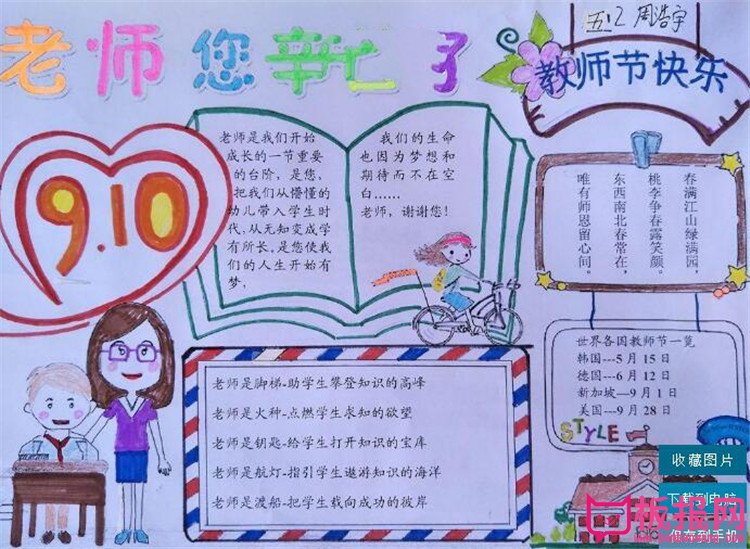 老师您
五.2 周浩宇
教师节快乐
9.10
老师是我们开始
成长的一节重要
的台阶，是您，
把我们从懵懂的
幼儿带入学生时
代，从无知变成学
有所长，是您使我
们的人生开始有
梦，
我们的生命
也因为梦想和
期待而不在空
白……
老师，谢谢您！
春满江山绿满园，
桃李争春露笑颜。
东西南北春常在，
唯有师恩留心间。
世界各国教师节一览
韩国---5 月 15 日
德国---6 月 12 日
新加坡---9 月 1 日
美国---9 月 28 日
STYLE
老师是脚梯-助学生攀登知识的高峰
老师是火种-点燃学生求知的欲望
老师是钥匙-给学生打开知识的宝库
老师是航灯-指引学生遨游知识的海洋
老师是渡船-把学生载向成功的彼岸
收藏图片
下载到电脑
板报网
保存到手机